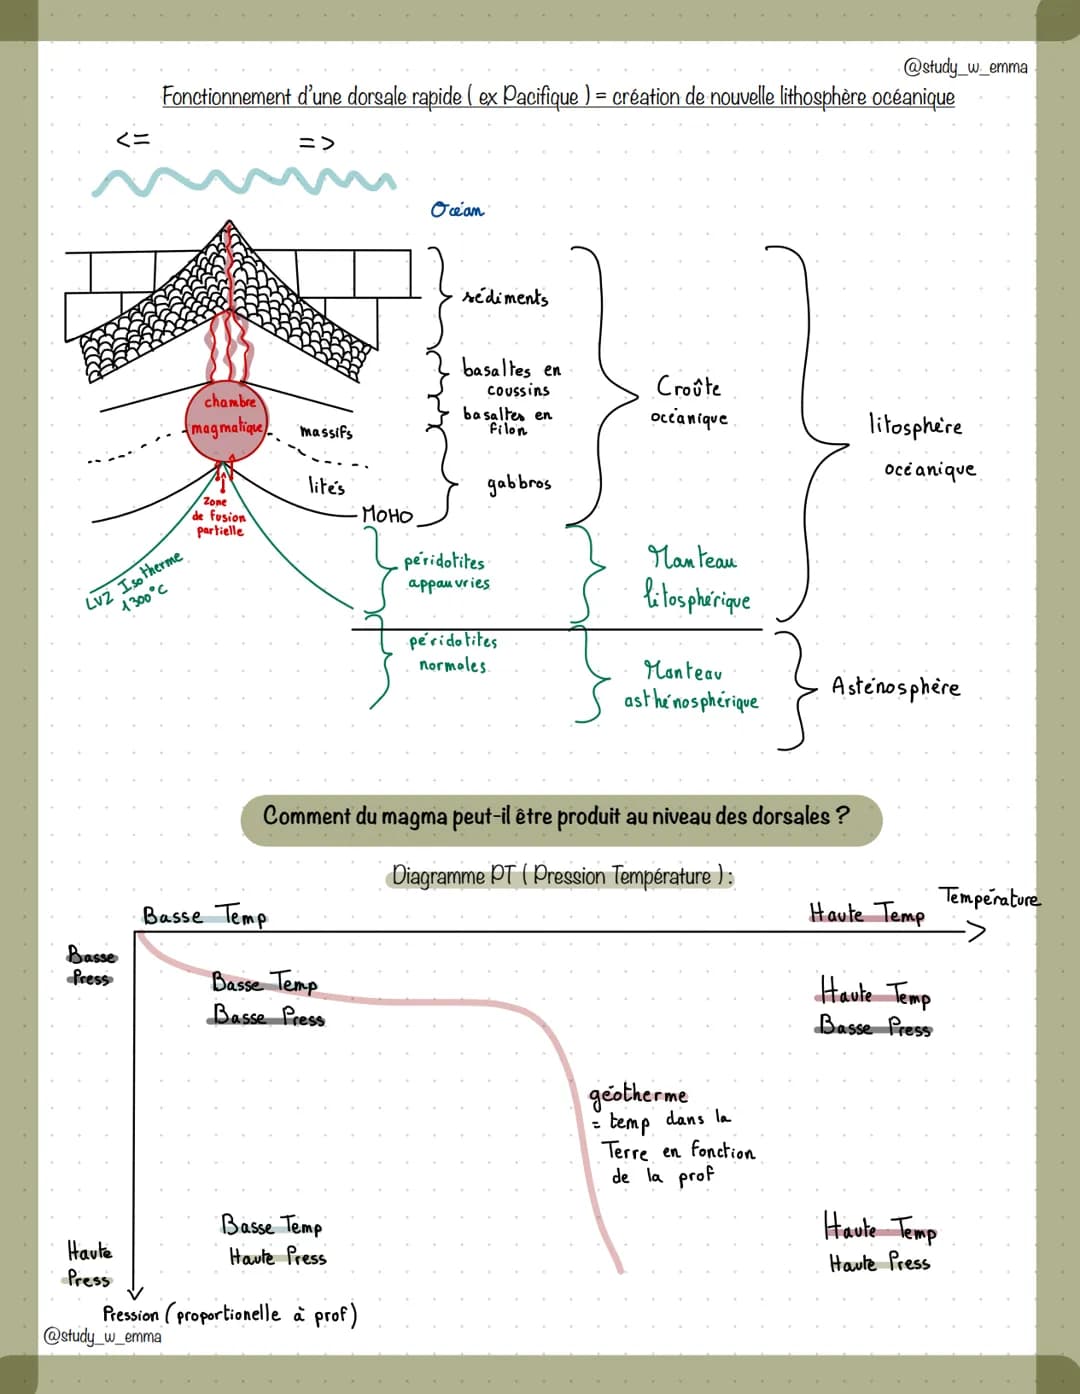 @study_w_emma
Fonctionnement d'une dorsale rapide ( ex Pacifique ) = création de nouvelle lithosphère océanique
<= =>
Océan
sédiments
basaltes en
coussins
basaltes en
filon
gabbros
Croûte
océanique
litosphère
océanique
chambre
magmatique
massifs
lités
MOHO
Zone
de fusion
partielle
LVZ Isotherme
1300°C
péridotites
appauvries
Manteau
litosphérique
péridotites
normales
Manteau
asthénosphérique
Asténosphère
Comment du magma peut-il être produit au niveau des dorsales ?
Diagramme PT ( Pression Température ) :
Température
Basse Temp
Haute Temp
Basse
Press
Basse Temp
Basse Press
Haute Temp
Basse Press
géotherme
= temp dans la
Terre en fonction
de la prof
Basse Temp
Haute Press
Haute Temp
Haute Press
Haute
Press
Pression (proportionelle à prof)
@study_w_emma